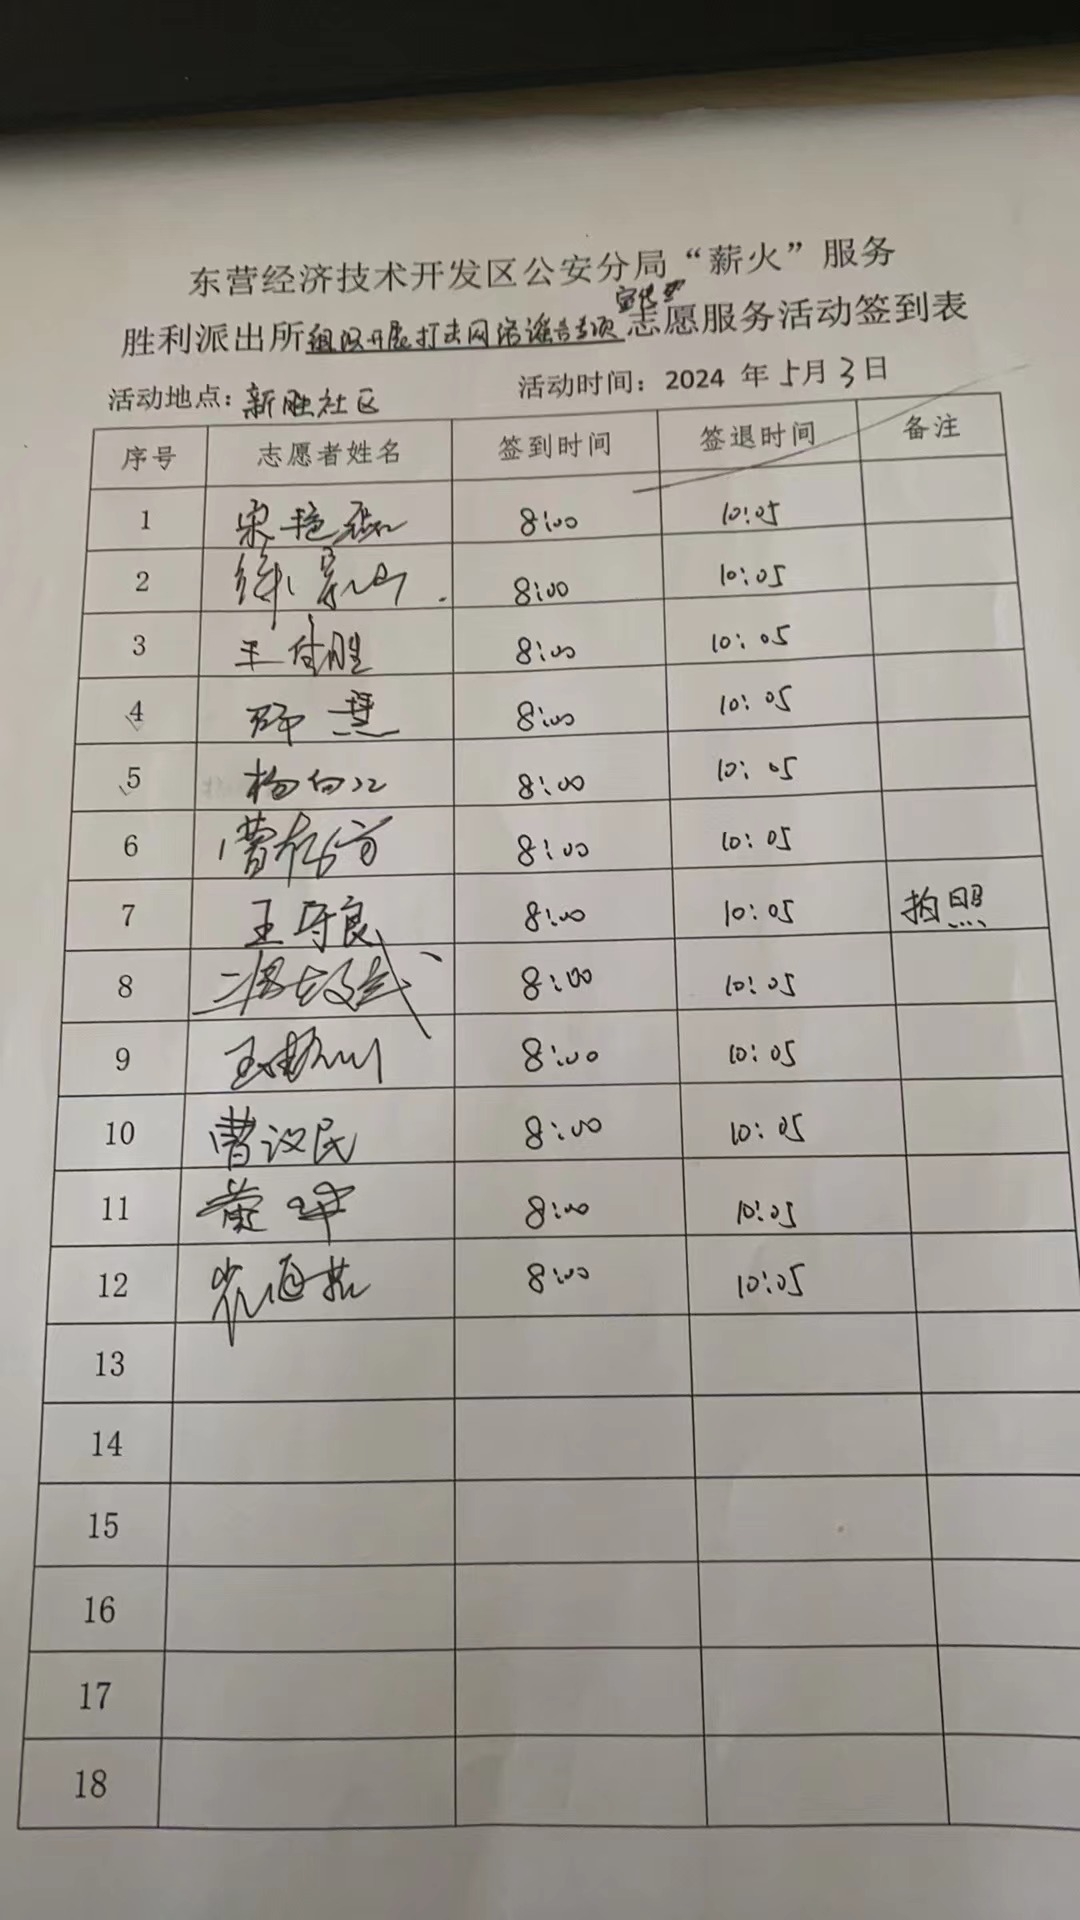 东营经济技术开发区公安分局“薪火”服务
宣传
胜利派出所组织开展打击网络谣言专项志愿服务活动签到表
活动地点：新胜社区 活动时间：2024 年 5月 3日
序号 志愿者姓名 签到时间 签退时间 备注
1 宋艳 8:00 10:05
2 8:00 10:05
3 王付胜 8:00 10:05
4 慧 8:00 10:05
5 杨向 8:00 10:05
6 曹 8:00 10:05
7 王守良 8:00 10:05 拍照
8 8:00 10:05
9 王 8:00 10:05
10 曹汉民 8:00 10:05
11 8:00 10:05
12 8:00 10:05
13
14
15
16
17
18